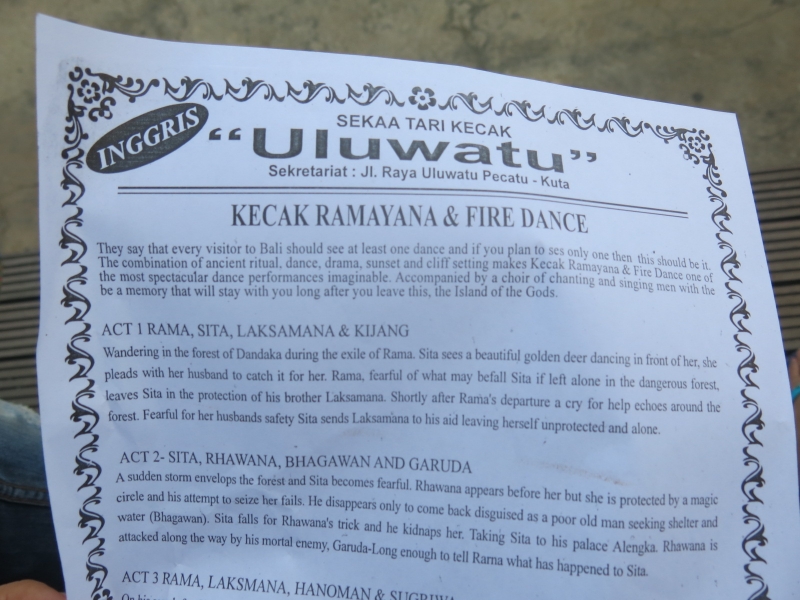 INGGRIS
SEKAA TARI KECAK
"Uluwatu"
Sekretariat : Jl. Raya Uluwatu Pecatu - Kuta
KECAK RAMAYANA & FIRE DANCE
They say that every visitor to Bali should see at least one dance and if you plan to ses only one then this should be it.
The combination of ancient ritual, dance, drama, sunset and cliff setting makes Kecak Ramayana & Fire Dance one of
the most spectacular dance performances imaginable. Accompanied by a choir of chanting and singing men with the
be a memory that will stay with you long after you leave this, the Island of the Gods.
ACT 1 RAMA, SITA, LAKSAMANA & KIJANG
Wandering in the forest of Dandaka during the exile of Rama. Sita sees a beautiful golden deer dancing in front of her, she
pleads with her husband to catch it for her. Rama, fearful of what may befall Sita if left alone in the dangerous forest,
leaves Sita in the protection of his brother Laksamana. Shortly after Rama's departure a cry for help echoes around the
forest. Fearful for her husbands safety Sita sends Laksamana to his aid leaving herself unprotected and alone.
ACT 2- SITA, RHAWANA, BHAGAWAN AND GARUDA
A sudden storm envelops the forest and Sita becomes fearful. Rhawana appears before her but she is protected by a magic
circle and his attempt to seize her fails. He disappears only to come back disguised as a poor old man seeking shelter and
water (Bhagawan). Sita falls for Rhawana's trick and he kidnaps her. Taking Sita to his palace Alengka. Rhawana is
attacked along the way by his mortal enemy, Garuda-Long enough to tell Rama what has happened to Sita.
ACT 3 RAMA, LAKSMANA, HANOMAN & SUGRIWA